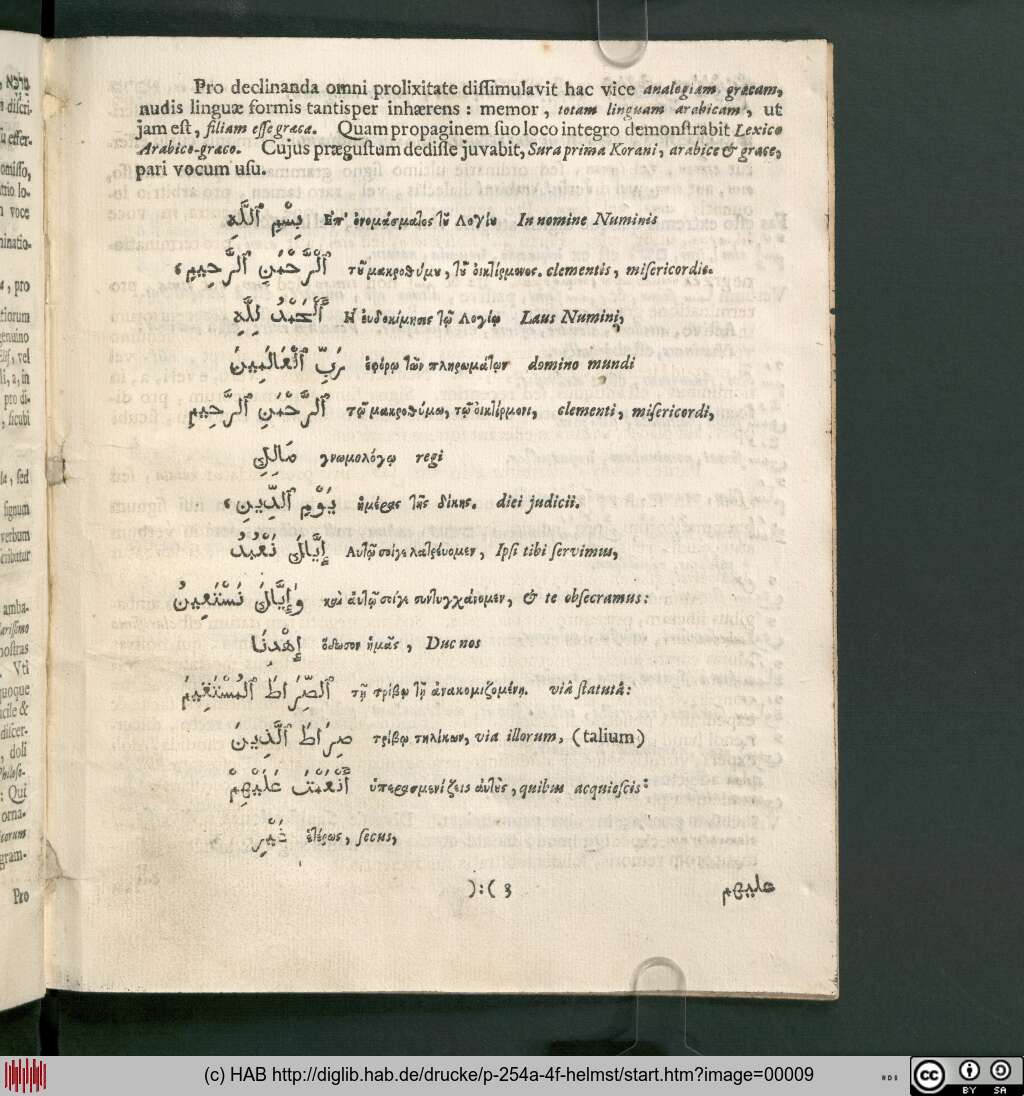 Pro declinanda omni prolixitate dissimulavit hac vice analogiam græcam,
nudis linguæ formis tantisper inhærens : memor, totam linguam arabicam, ut
jam est, filiam esse græcæ. Quam propaginem suo loco integro demonstrabit Lexico
Arabico-græco. Cujus prægustum dedisse juvabit, Sura prima Korani, arabice & græce,
pari vocum usu.
بِسْمِ ٱللَّهِ Επ' ὀνομάσματος τῦ Λογίυ In nomine Numinis
ٱلْرَّحْمٰنِ ٱلرَّحِيمِ، τῦ μακροθύμυ, τῦ ὀικτίρμονος. clementis, misericordis.
أَلْحَمْدُ لِلَّهِ Η ἐυδοκίμησις τῷ Λογίῳ Laus Numini,
رَبِّ ٱلْعَالَمِينَ ἐφόρῳ τῶν πληρωμάτων domino mundi
ٱلرَّحْمٰنِ ٱلرَّحِيمِ τῷ μακροθύμῳ, τῷ ὀικτίρμονι, clementi, misericordi,
مَالِكِ γνωμολόγῳ regi
يَوْمِ ٱلدِّينِ، ἡμέρας τῆς δίκης. diei judicii.
إِيَّاكَ نَعْبُدُ Αυτῷ σοίγε λατρέυομεν, Ipsi tibi servimus,
وَإِيَّاكَ نَسْتَعِينُ καὶ ἀυτῷ σοίγε συντυγχάνομεν, & te obsecramus:
إِهْدِنَا ὅδωσον ἡμᾶς, Duc nos
ٱلصِّرَاطَ ٱلمُسْتَقِيمَ τῇ τρίβῳ τῇ ἀνακομιζομένῃ. viâ statutâ:
صِرَاطَ ٱلَّذِينَ τρίβῳ τηλίκων, via illorum, (talium)
أَنْعَمْتَ عَلَيْهِمْ ὑπερασμενίζεις ἀυτὺς, quibus acquiescis:
غَيْرِ ἑτέρως, secus,
):( 3
عليهم
מלכא,
n discri-
su effer-
omisso,
n voce
ninatio-
a, pro
tiorum
genuino
li, a, in
pro di-
, sicubi
la, sed
signum
verbum
scribatur
amba-
nostras
. Vti
quoque
acile &
discer-
, doli
Philoso-
: Qui
orna-
gram-
Pro
(c) HAB http://diglib.hab.de/drucke/p-254a-4f-helmst/start.htm?image=00009
HAB
cc BY SA